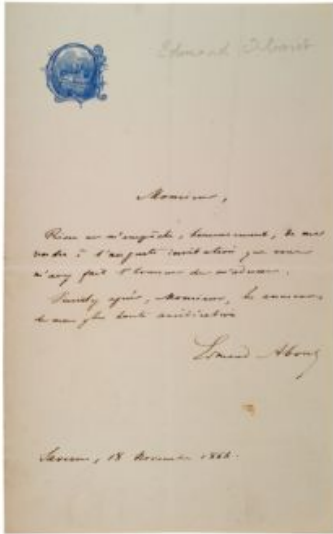 Edmond About
Monsieur,
Rien ne m'empêche, heureusement, de me
rendre à l'auguste invitation que vous
m'avez fait l'honneur de m'adresser.
agréer, Monsieur, 
de ma plus haute considération
Edmond About
Saverne, 18 Novembre